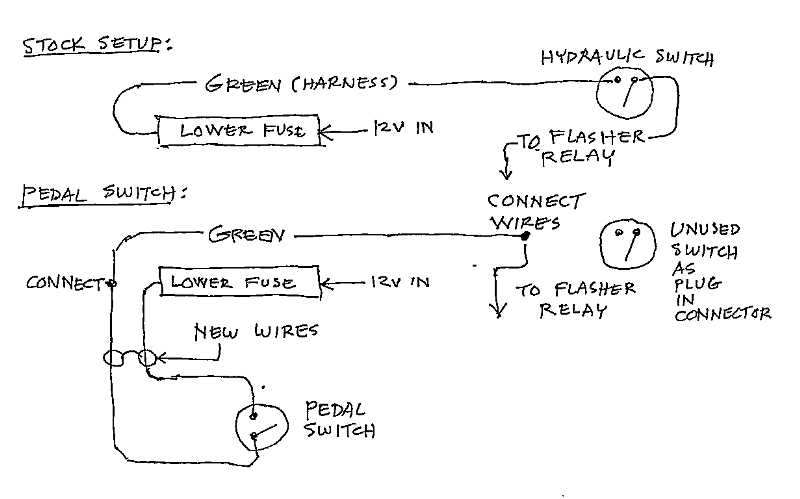 STOCK SETUP:
HYDRAULIC SWITCH
GREEN (HARNESS)
LOWER FUSE
12V IN
TO FLASHER
RELAY
PEDAL SWITCH:
CONNECT
WIRES
GREEN
UNUSED
SWITCH
AS
PLUG
IN
CONNECTOR
CONNECT
LOWER FUSE
12V IN
TO FLASHER
RELAY
NEW WIRES
PEDAL
SWITCH